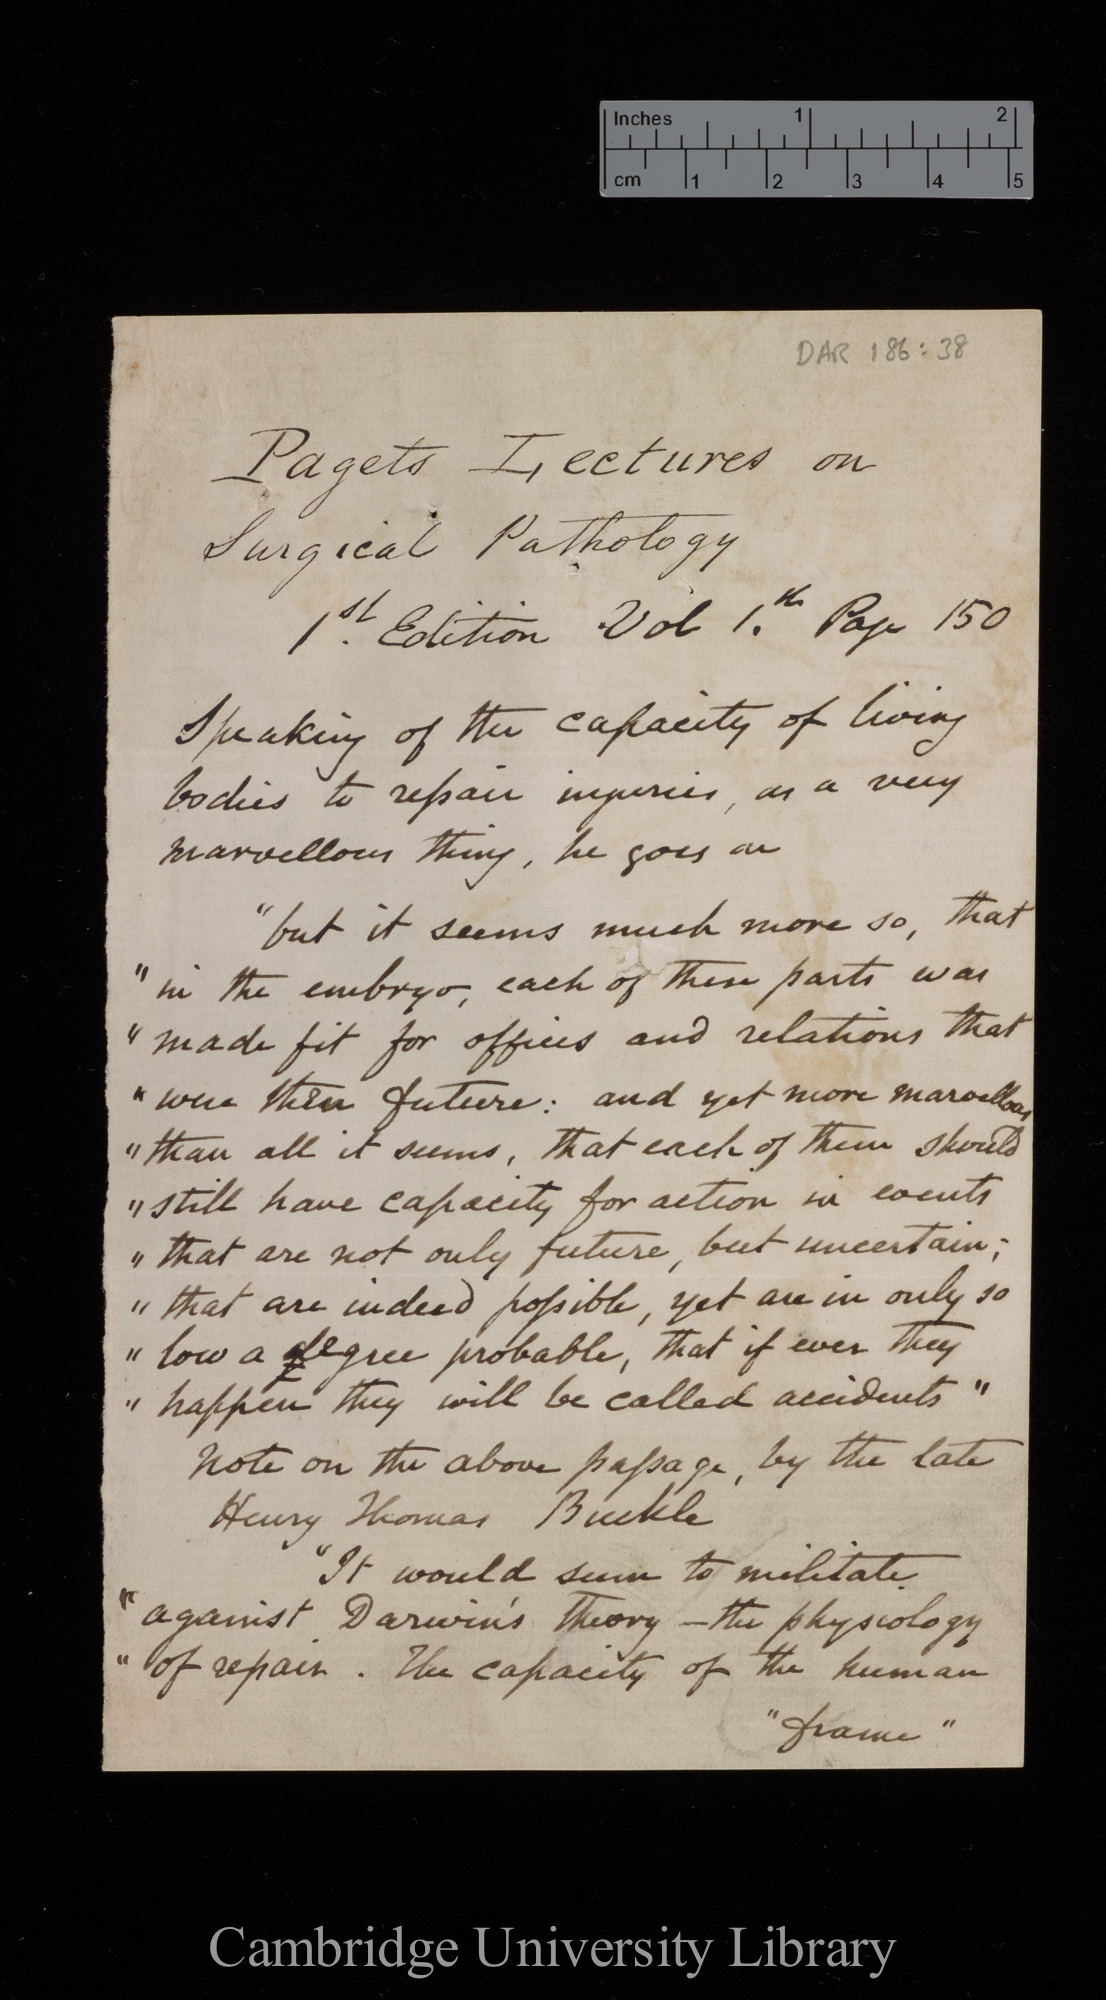 Inches 1 2
cm 1 2 3 4 5
DAR 186:38
Pagets Lectures on
Surgical Pathology
1st. Edition Vol 1.th Page 150
Speaking of the capacity of living
bodies to repair injuries, as a very
marvellous thing, he goes on
"but it seems much more so, that
" in the embryo, each of these parts was
" made fit for offices and relations that
" were then future: and yet more marvellous
" than all it seems, that each of them should
" still have capacity for action in events
" that are not only future, but uncertain;
" that are indeed possible, yet are in only so
" low a degree probable, that if ever they
" happen they will be called accidents "
Note on the above passage, by the late
Henry Thomas Buckle
"It would seem to militate
" against Darwin's theory – the physiology
" of repair. The capacity of the human
" frame "
Cambridge University Library